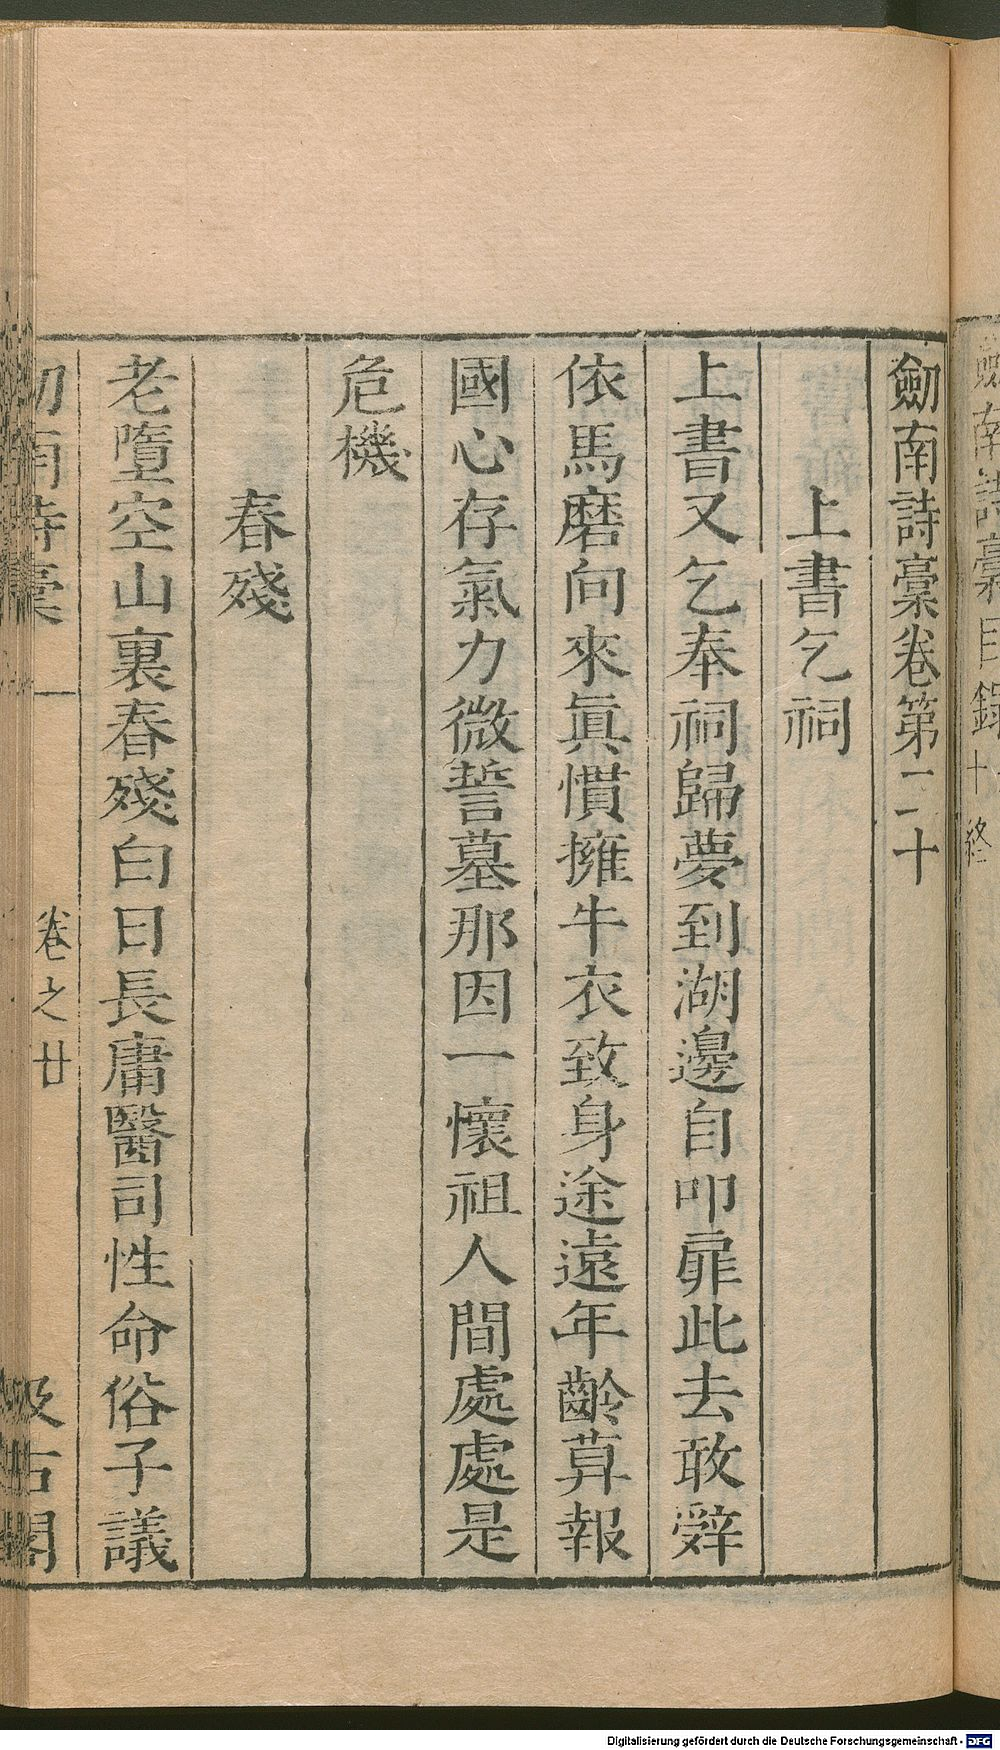 劒南詩稾目錄
十
終
劒南詩稾卷第二十
上書乞祠
上書又乞奉祠歸夢到湖邊自叩扉此去敢辤
依馬磨向來眞慣擁牛衣致身途遠年齡算報
國心存氣力微誓墓那因一懷祖人間處處是
危機
春殘
老墮空山裏春殘白日長庸醫司性命俗子議
劒南詩稾
卷之廿
一
汲古閣
Digitalisierung gefördert durch die Deutsche Forschungsgemeinschaft - DFG